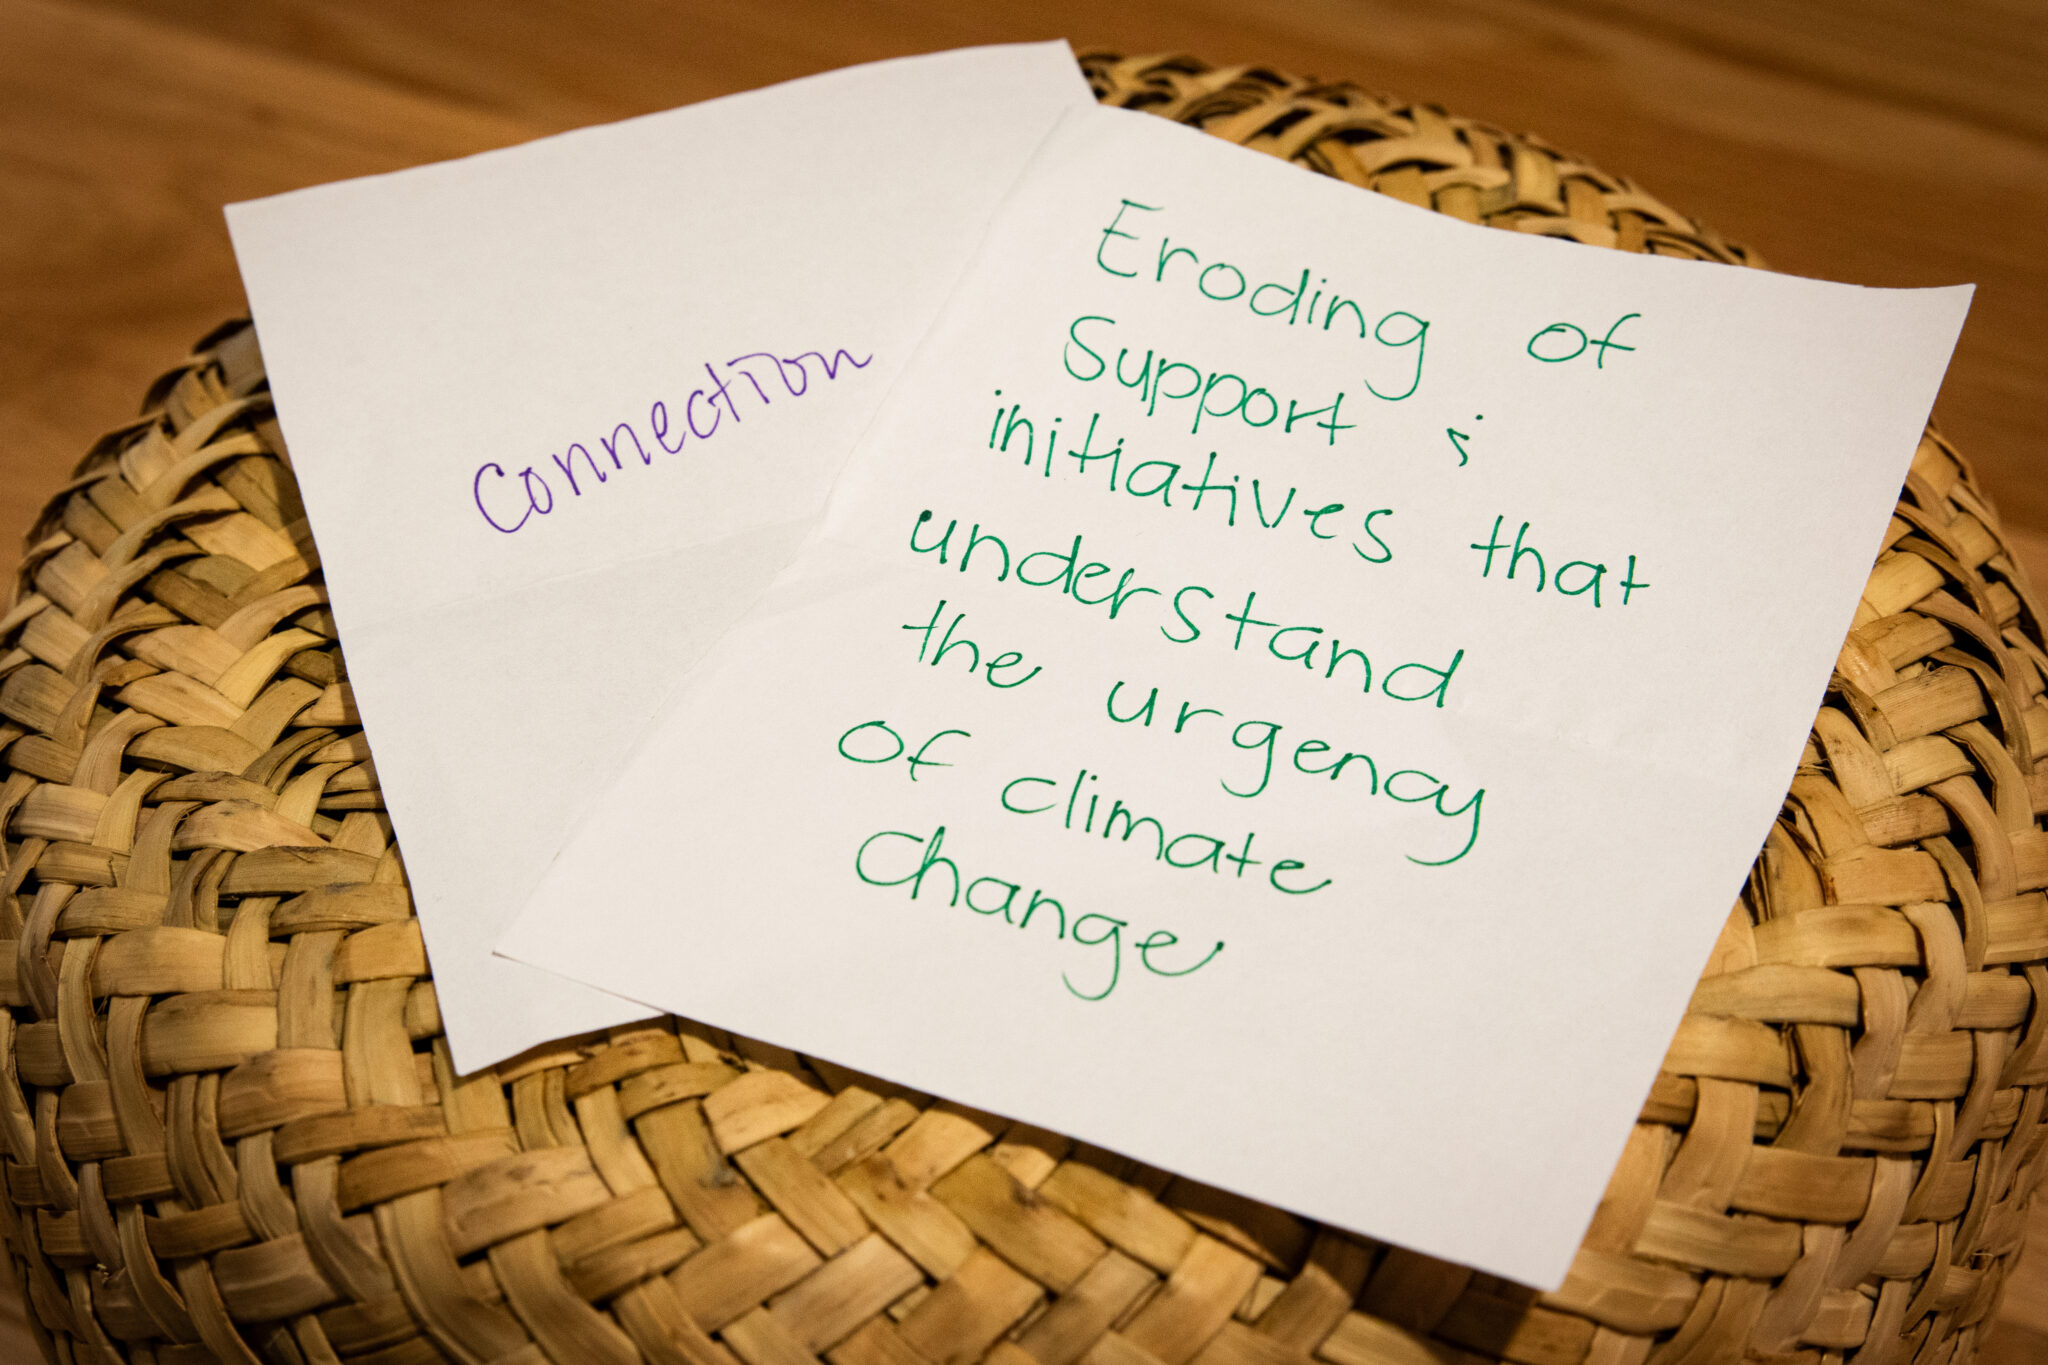 Connection
Eroding of
Support &
initiatives that
understand
the urgency
of climate
Change